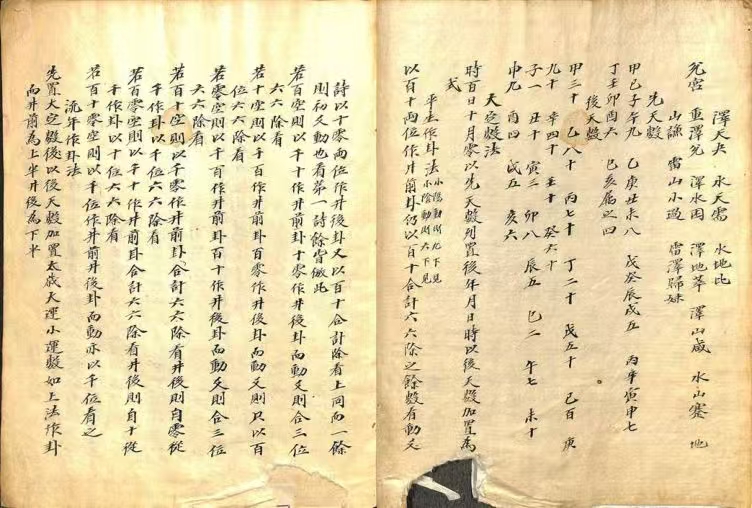 澤天夬　水天需　水地比
兌宮　重澤兌　澤水困　澤地萃　澤山咸　水山蹇　地
山謙　雷山小過　雷澤歸妹
先天數
甲己子午九　乙庚丑未八　戊癸辰戌五　丙辛寅申七
丁壬卯酉六　巳亥屬之四
後天數
甲三十　乙八十　丙七十　丁二十　戊五十　己百　庚
九十　辛四十　壬十　癸六十
子一　丑十　寅三　卯八　辰五　巳二　午七　未十
申九　酉四　戌五　亥六
大定數法
時百日十月零以先天數列置後年月日時以後天數加置為
式
平生作卦法 小陽動則九下見 小陰動則六下見
以百十兩位作井前卦仍以百十合計六六除之餘數看動爻
詩以十零兩位作井後卦又以百十合計除看上同而一餘
則初爻動也看第一詩餘皆倣此
若百空則以千十作井前卦十零作井後卦而動爻則合三位
六六除看
若十空則以千百作井前卦百零作井後卦而動爻則只以百
位六六除看
若零空則以千百作井前卦百十作井後卦而動爻則合三位
六六除看
若百十空則以千零作井前卦合計六六除看井後則自零從
千作卦以千位六六除看
若百零空則以千十作井前卦合計六六除看井後則自十從
千作卦以十位六六除看
若百十零空則以千位作井前井後卦而動亦以千位看之
流年作卦法
先置大定數後以後天數加置太歲大運小運數如上法作卦
而井前為上半井後為下半